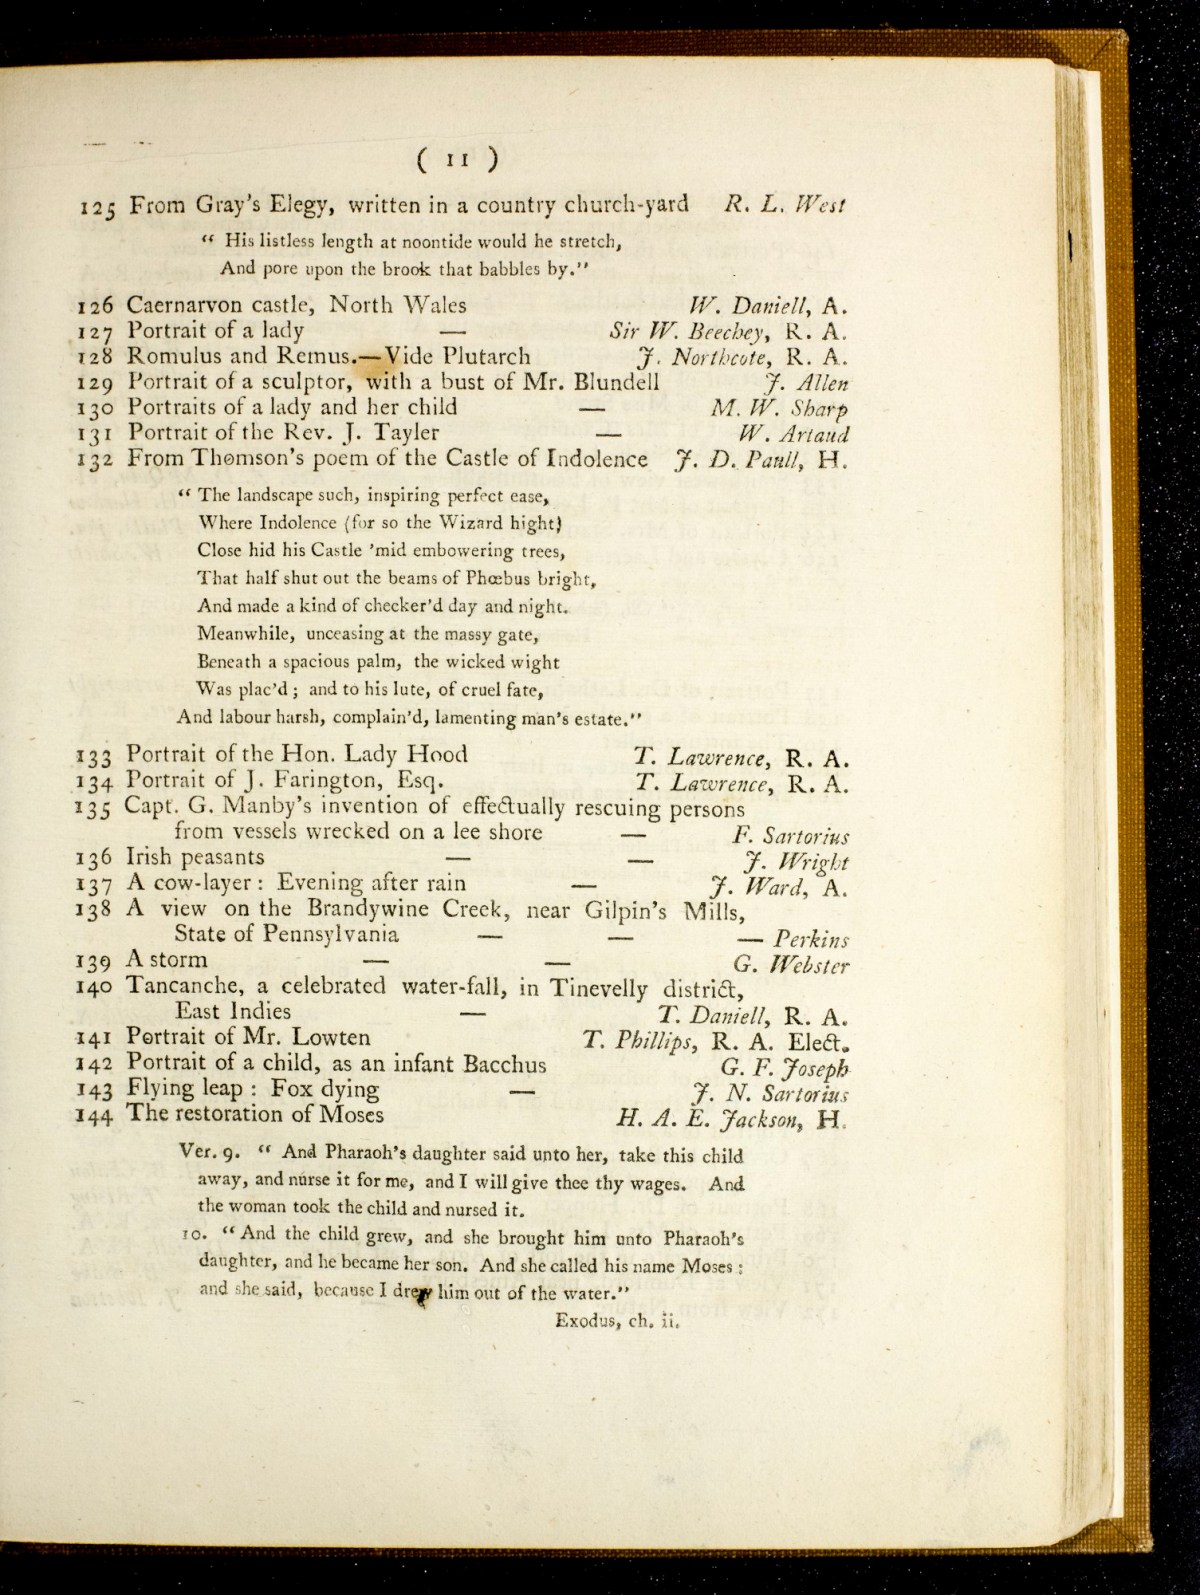 ( 11 )
125 From Gray's Elegy, written in a country church-yard R. L. West
“ His listless length at noontide would he stretch,
And pore upon the brook that babbles by.”
126 Caernarvon castle, North Wales W. Daniell, A.
127 Portrait of a lady — Sir W. Beechey, R. A.
128 Romulus and Remus.—Vide Plutarch J. Northcote, R. A.
129 Portrait of a sculptor, with a bust of Mr. Blundell J. Allen
130 Portraits of a lady and her child — M. W. Sharp
131 Portrait of the Rev. J. Tayler — W. Artaud
132 From Thomson's poem of the Castle of Indolence J. D. Paull, H.
“ The landscape such, inspiring perfect ease,
Where Indolence (for so the Wizard hight)
Close hid his Castle 'mid embowering trees,
That half shut out the beams of Phœbus bright,
And made a kind of checker'd day and night.
Meanwhile, unceasing at the massy gate,
Beneath a spacious palm, the wicked wight
Was plac'd ; and to his lute, of cruel fate,
And labour harsh, complain'd, lamenting man's estate.”
133 Portrait of the Hon. Lady Hood T. Lawrence, R. A.
134 Portrait of J. Farington, Esq. T. Lawrence, R. A.
135 Capt. G. Manby's invention of effectually rescuing persons
from vessels wrecked on a lee shore — F. Sartorius
136 Irish peasants — — J. Wright
137 A cow-layer : Evening after rain — J. Ward, A.
138 A view on the Brandywine Creek, near Gilpin's Mills,
State of Pennsylvania — — — Perkins
139 A storm — — G. Webster
140 Tancanche, a celebrated water-fall, in Tinevelly district,
East Indies — T. Daniell, R. A.
141 Portrait of Mr. Lowten T. Phillips, R. A. Elect.
142 Portrait of a child, as an infant Bacchus G. F. Joseph
143 Flying leap : Fox dying — J. N. Sartorius
144 The restoration of Moses H. A. E. Jackson, H.
Ver. 9. “ And Pharaoh's daughter said unto her, take this child
away, and nurse it for me, and I will give thee thy wages. And
the woman took the child and nursed it.
10. “ And the child grew, and she brought him unto Pharaoh's
daughter, and he became her son. And she called his name Moses :
and she said, because I drew him out of the water.”
Exodus, ch. ii.